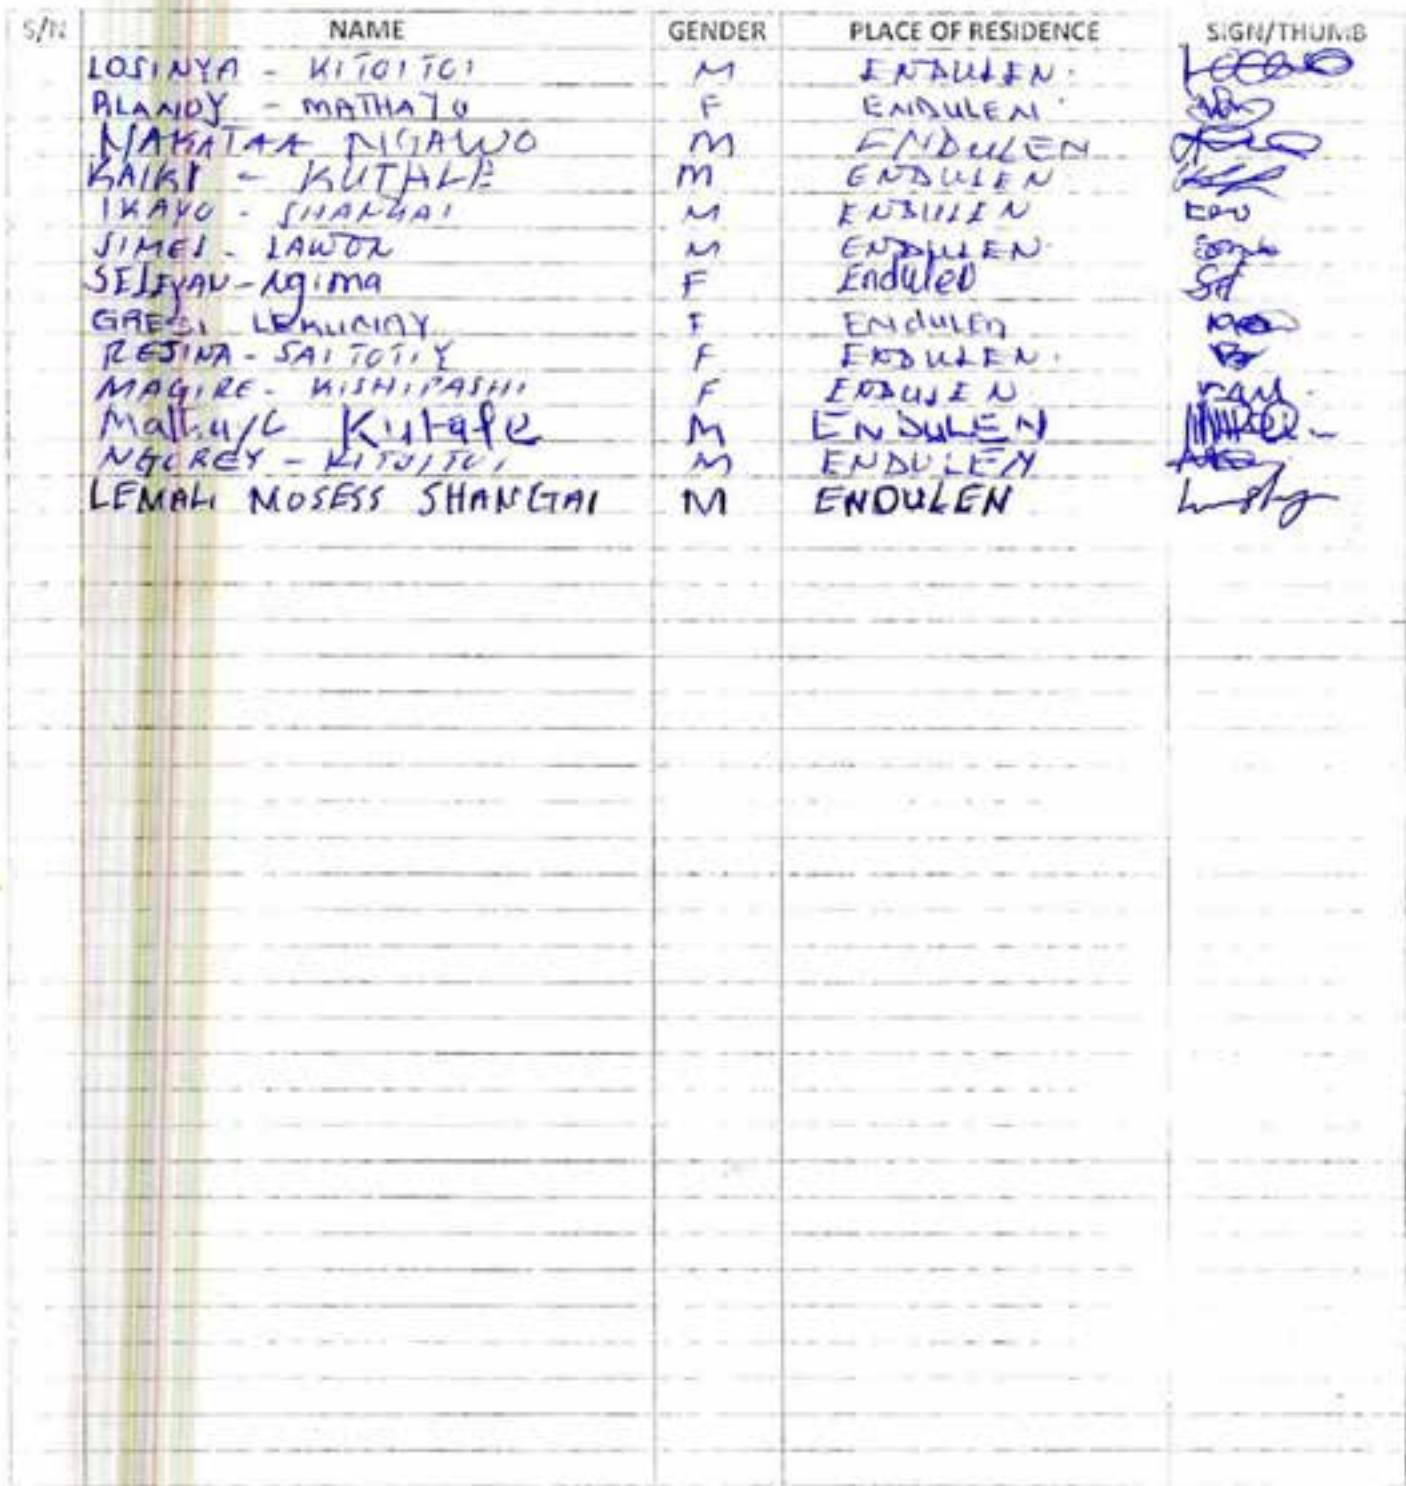 S/N NAME GENDER PLACE OF RESIDENCE SIGN/THUMB
LOSINYA - KITOITOI M ENDULEN.
MATHAYO F ENDULEN.
NAKATAA NGAWO M ENDULEN
KAIKI - KUTHLE M ENDULEN
IKAYO - SHANGAI M ENDULEN
SIMEL - LAWON M ENDULEN.
SELEYAN - Ngima F Endulen
LEKUMAY F ENdULEN
REJINA - SAITOTIY F ENDULEN.
MAGIRE - KISHIPASHI F ENDULEN.
M ENDULEN
NGOREY - KITOITOI M ENDULEN
LEMALI MOSESS SHANGAI M ENDULEN